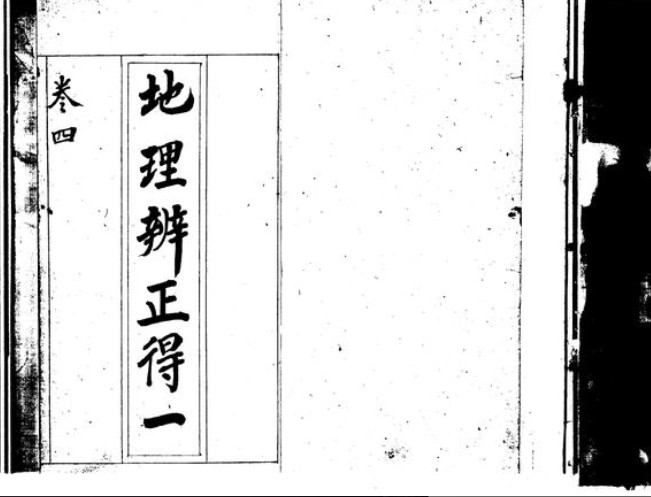 地理辨正得一
卷四